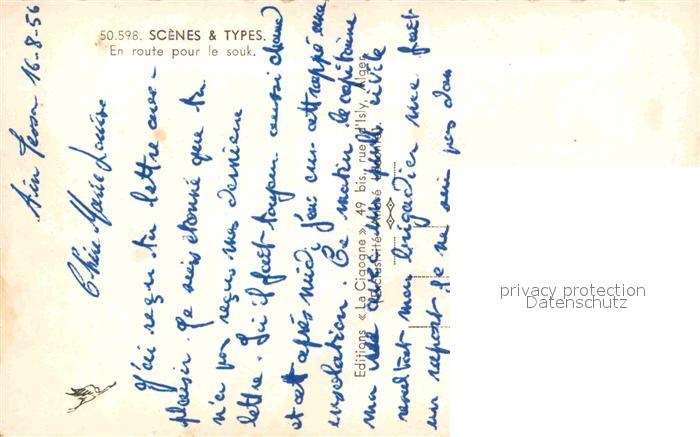 50.598. SCÈNES & TYPES.
En route pour le souk.
Aïn 16-8-56
Chère Marie Louise
J'ai reçu ta lettre avec
plaisir. Je suis étonné que tu
n'ai pas reçus mes dernière
lettre. Ici il fait toujour aussi chaud
et cet après midi j'ai encore attrappé une
insolation. Ce matin le capitaine
m'a vue avec un pull civile
resultat mon brigadier me fait
un raport je ne sui pas dans
Editions « La Cigogne » 49 bis, rue d'Isly, Alger
Exclusivité
privacy protection
Datenschutz